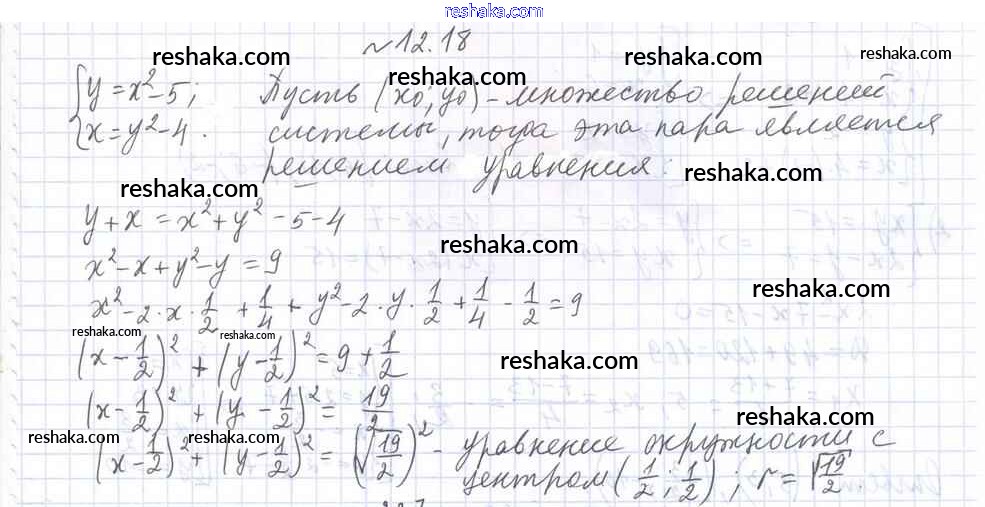 www.gdz.cool
№12.18
reshaka.com reshaka.com reshaka.com reshaka.com
{y = x² - 5; Пусть (x₀; y₀) - множество решений
{x = y² - 4. системы, тогда эта пара является
решением уравнения:
reshaka.com reshaka.com
y + x = x² + y² - 5 - 4
reshaka.com
x² - x + y² - y = 9
reshaka.com
x² - 2 · x · 1/2 + 1/4 + y² - 2 · y · 1/2 + 1/4 - 1/2 = 9
reshaka.com reshaka.com
(x - 1/2)² + (y - 1/2)² = 9 + 1/2
reshaka.com
(x - 1/2)² + (y - 1/2)² = 19/2
reshaka.com
reshaka.com reshaka.com
(x - 1/2)² + (y - 1/2)² = (√19/2)² - уравнение окружности с
центром (1/2; 1/2); r = √19/2.